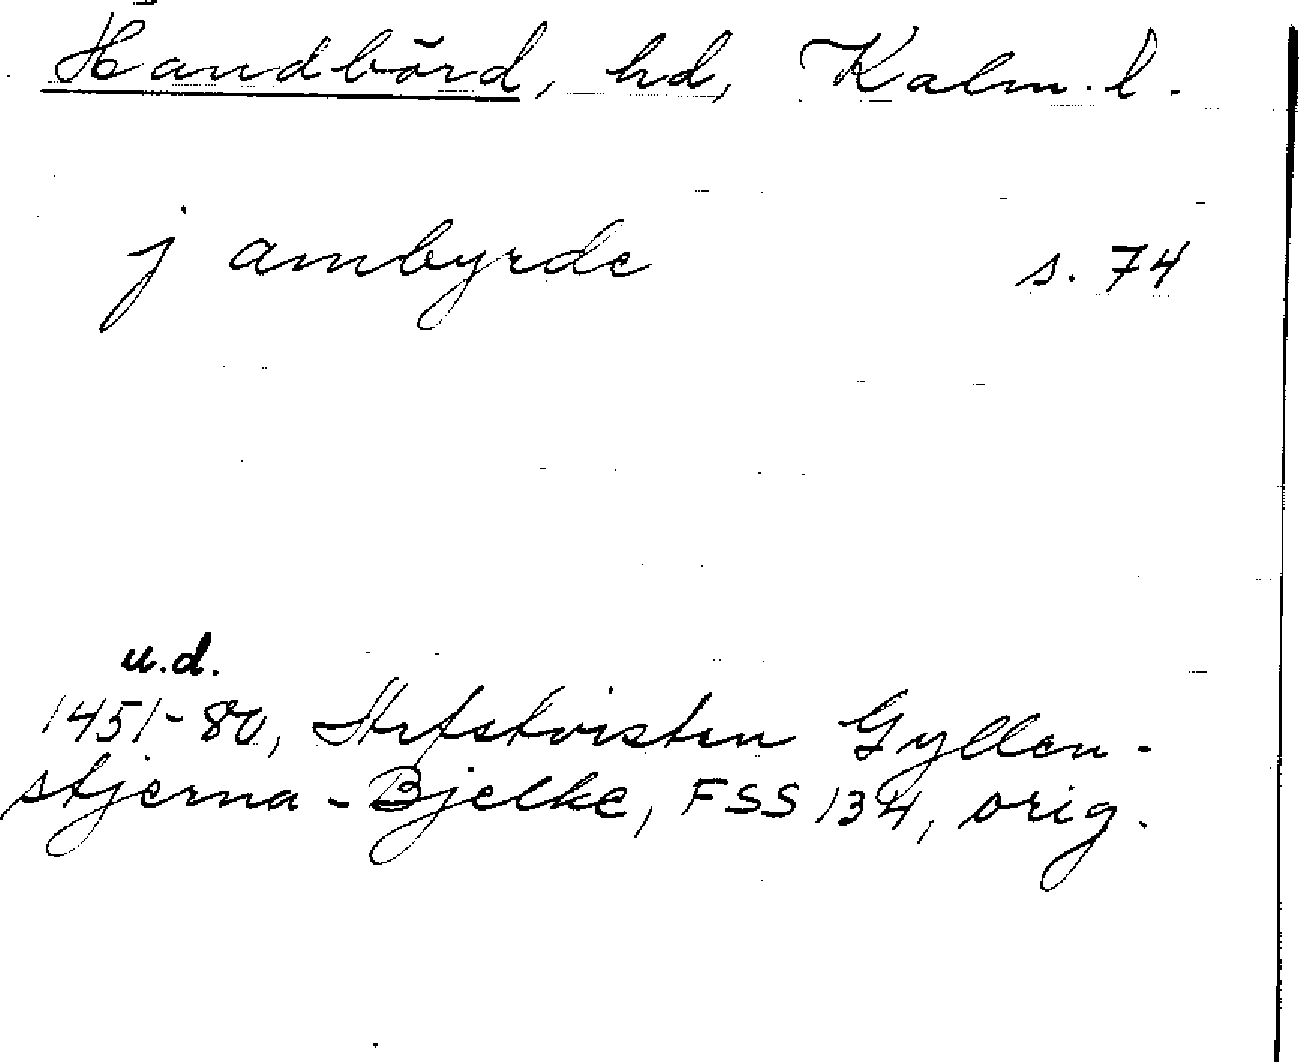 Handbörd, hd, Kalm. l.
j ambyrde s. 74
u.d.
1451-80, Arfstvisten Gyllen-
stjerna - Bjelke, FSS 134, orig.